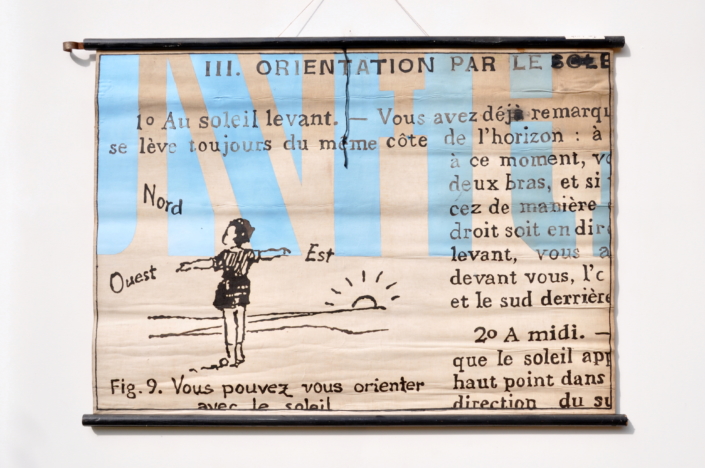 III. ORIENTATION PAR LE SOLE
1º Au soleil levant. — Vous avez déjà remarqu
se lève toujours du même côte de l'horizon : à
à ce moment, vo
deux bras, et si
cez de manière
droit soit en dire
levant, vous a
devant vous, l'c
et le sud derrière
2º A midi. —
que le soleil app
haut point dans
direction du su
Nord
Ouest
Est
Fig. 9. Vous pouvez vous orienter
avec le soleil